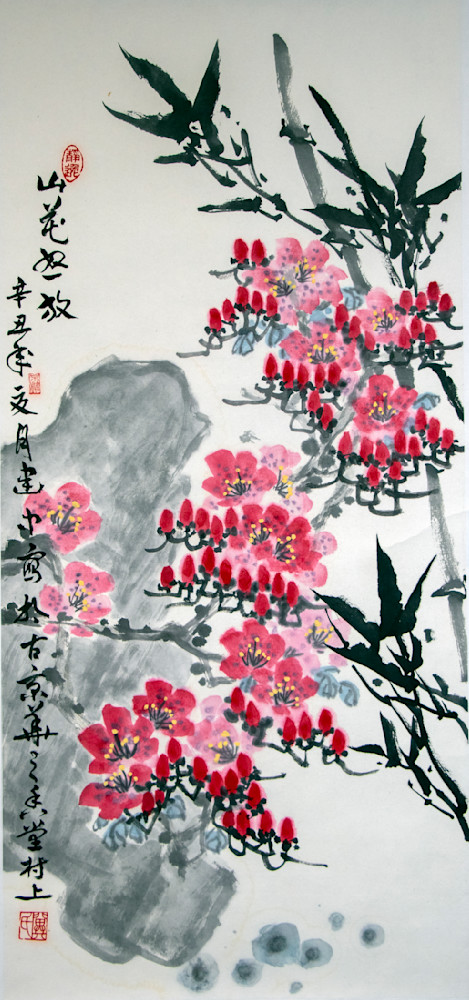 山花怒放
辛丑年夏月建中寫於古京華之香堂村上